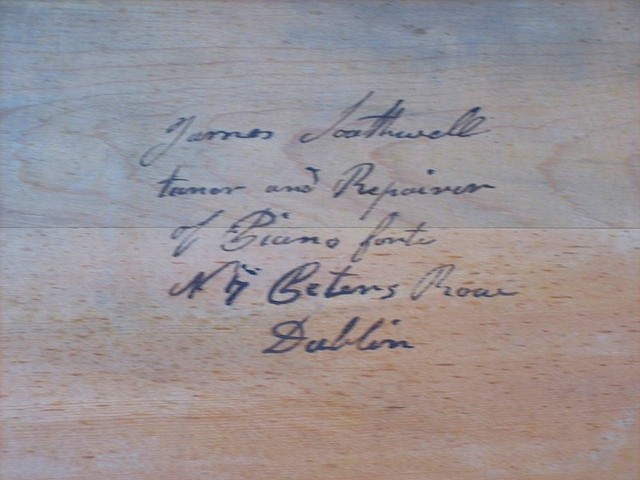 James Southwell
tunor and Repairer
of Piano forte
N 7 Peters Row
Dublin